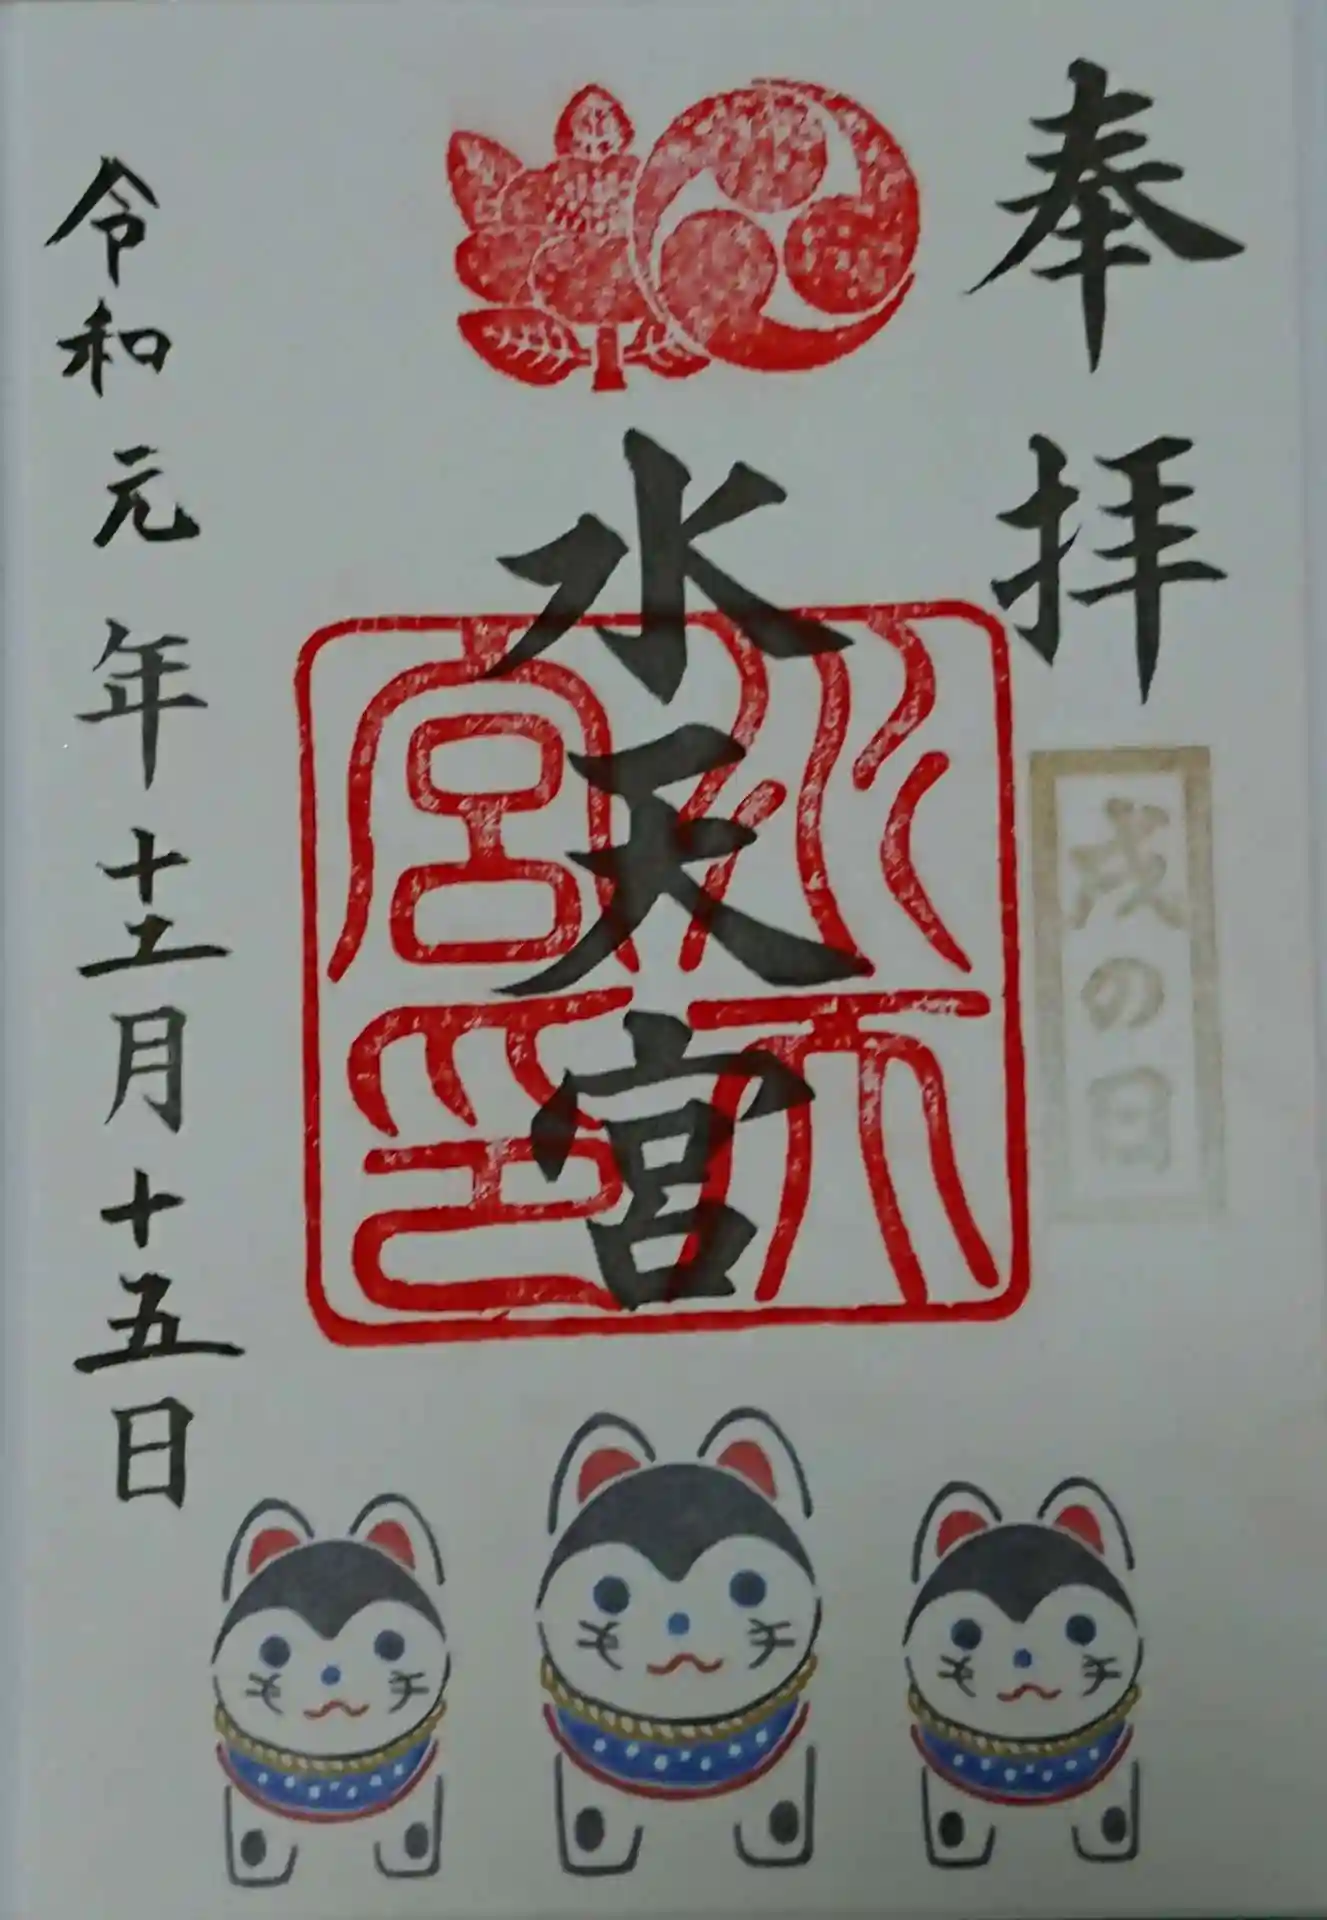 奉拝
戌の日
水天宮
水天宮印
令和元年十二月十五日